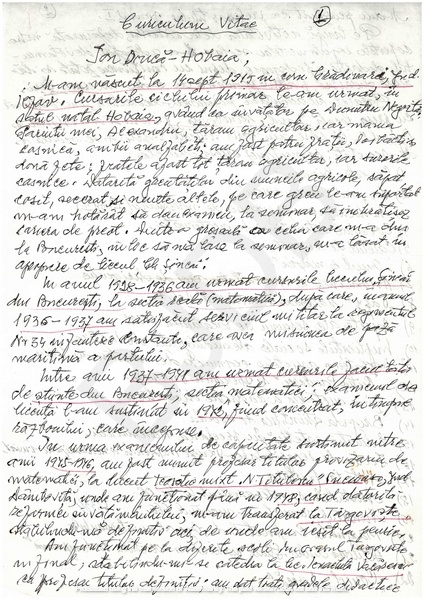 Curiculum Vitae
1
Ion Doncă-Hobaia;
M-am născut la 14 sept 1915 în com Grădinari, jud.
Ilfov. Cursurile ciclului primar le-am urmat, în
satul natal Hobaia, având ca învățător pe Dumitru Negoiță
Părinții mei, Alexandru, țăran agricultor, iar mama
casnică, amîndoi analfabeți; am fost patru frați, doi băieți și
două fete; fratele a fost tot țăran agricultor, iar surorile
casnice. Datorită greutăților din muncile agricole, săpat
cosit, secerat și multe altele, pe care greu le-am suportat
m-am hotărât să dau examen, la seminar, să îmbrățișez
cariera de preot. Însă o greșeală a celui care m-a dus
la București, în loc să mă lase la seminar, m-a lăsat în
apropiere de liceul Gh. Șincai.
În anul 1928-1936 am urmat cursurile liceului, Șincai
din București, la secția reală (matematică), după care, în anul
1936-1937 am satisfăcut serviciul militar la regimentul
Nr 34 infanterie Constanța, care avea misiunea de pază
maritimă a portului.
Între anii 1937-1941 am urmat cursurile facultății
de științe din București, secția matematici. Examenul de
licență l-am susținut în 1942, fiind concentrat, în timpul
războiului, care începuse.
În urma examenului de capacitate susținut între
anii 1945-1946, am fost numit profesor titular provizoriu de
matematică, la liceul teoretic mixt, N. Titulescu Pucioasa, jud
Dâmbovița, unde am funcționat până în 1948, când datorită
reformei învățământului, m-am transferat la Târgoviște
stabilindu-mă definitiv aci, de unde am ieșit la pensie.
Am funcționat pe la diferite școli în orașul Târgoviște
în final, stabilindu-mi-se catedra la lic. Ienăchiță Văcărescu
ca profesor titular definitiv: am dat toate gradele didactice